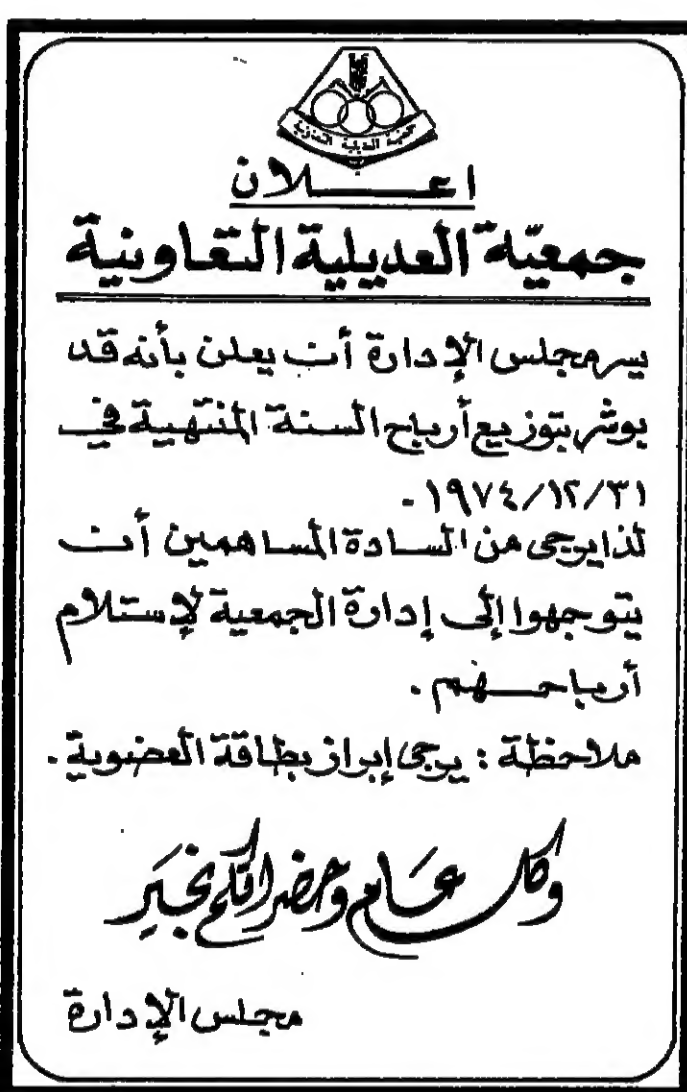 جمعية العديلية التعاونية
اعـــلان
جمعيّة العديلية التعاونية
يسر مجلس الإدارة أن يعلن بأنه قد
بوشر بتوزيع أرباح السنة المنتهية في
١٩٧٤/١٢/٣١ .
لذا يرجى من السادة المساهمين أن
يتوجهوا إلى إدارة الجمعية لإستلام
أرباحـهم .
ملاحظة : يرجى إبراز بطاقة العضوية .
وكل عَام وحضراتكم بخَير
مجلس الإدارة